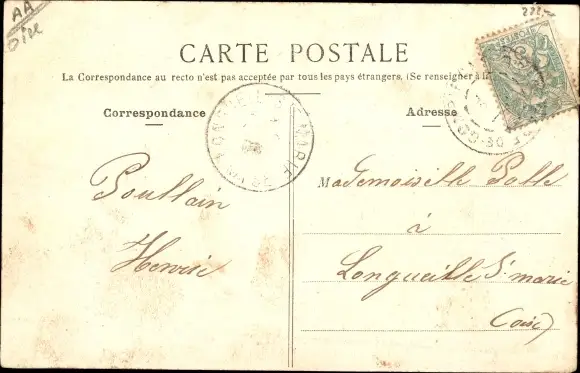 AA
Oise
CARTE POSTALE
La Correspondance au recto n'est pas acceptée par tous les pays étrangers. (Se renseigner à la
Correspondance
Adresse
Poullain
Henrie
Mademoiselle Palle
à
Longueille Ste marie
(oise)